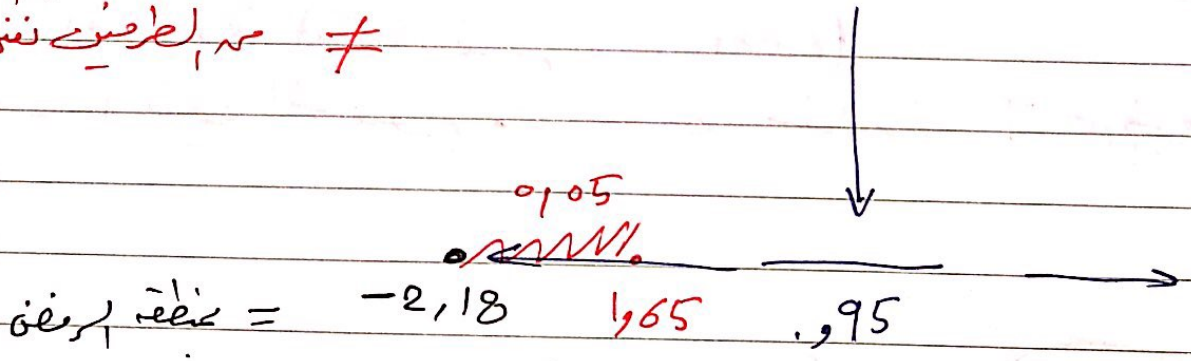 ≠ من الطرفين
0,05
منطقة الرفض = -2,18 1,65 0,95